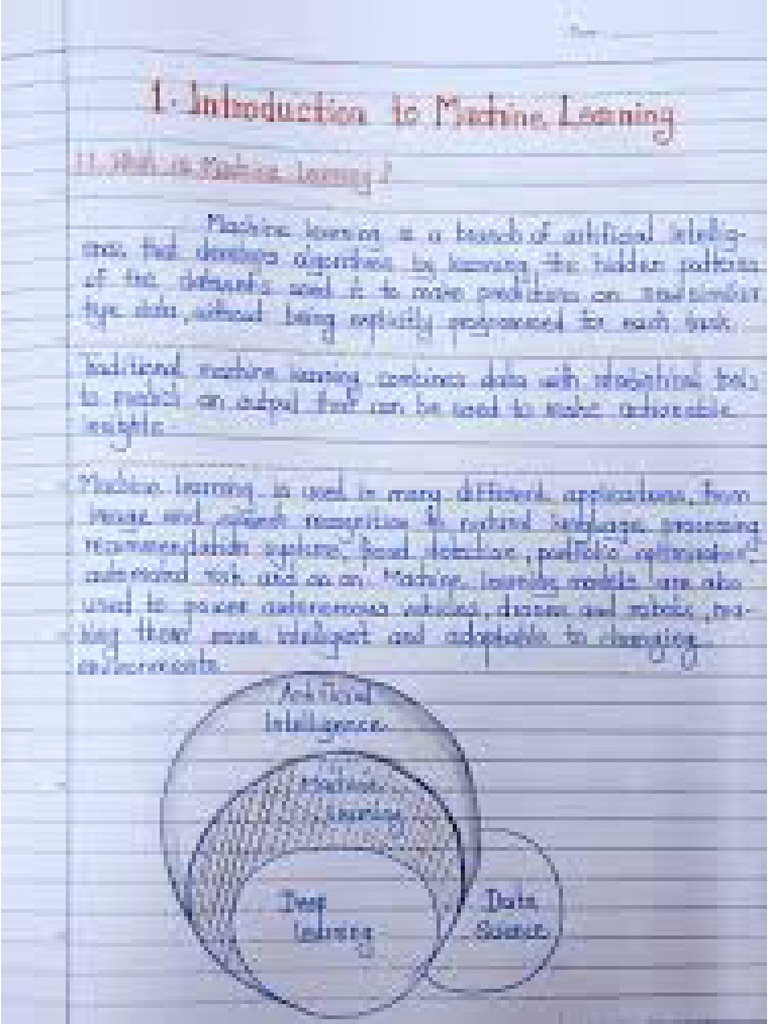 1. Introduction to Machine Learning
1.1. What is Machine Learning?
Machine learning is a branch of artificial intellig-
ence that develops algorithms by learning the hidden patterns
of the datasets used it to make predictions on new similar
type data, without being explicitly programmed for each task.
Traditional machine learning combines data with statistical tools
to predict an output that can be used to make actionable
insights.
Machine learning is used in many different applications, from
image and speech recognition to natural language processing
recommendation systems, fraud detection, portfolio optimization
automated task and so on. Machine learning models are also
used to power autonomous vehicles, drones and robots, ma-
king them more intelligent and adaptable to changing
environments.
Artificial
Intelligence
Machine
Learning
Deep
Learning
Data
Science